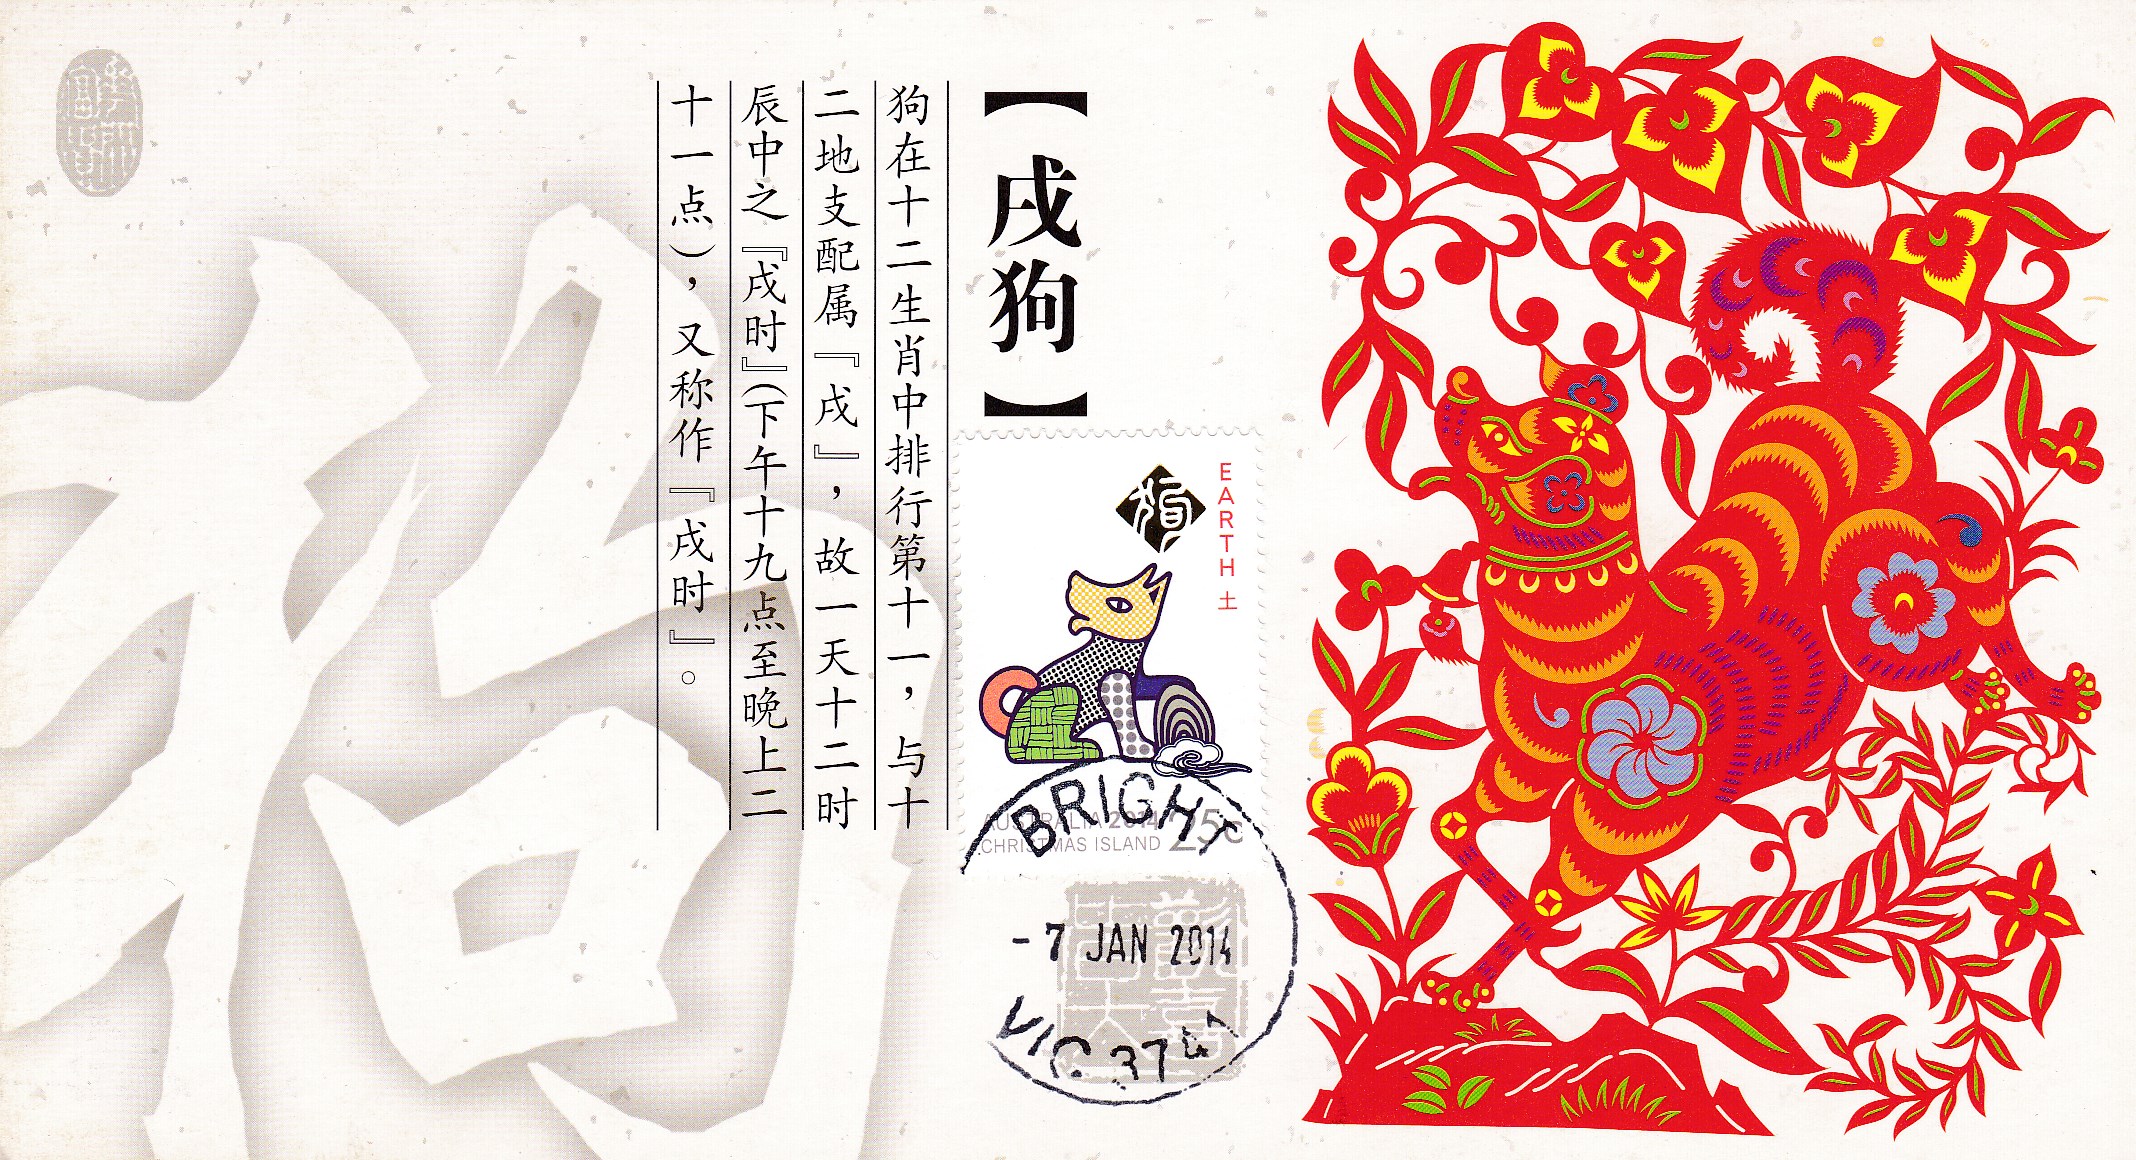 【戌狗】
狗在十二生肖中排行第十一，与十
二地支配属『戌』，故一天十二时
辰中之『戌时』(下午十九点至晚上二
十一点)，又称作『戌时』。
狗
EARTH 土
AUSTRALIA 2014
CHRISTMAS ISLAND 25c
BRIGHT
-7 JAN 2014
VIC 3741